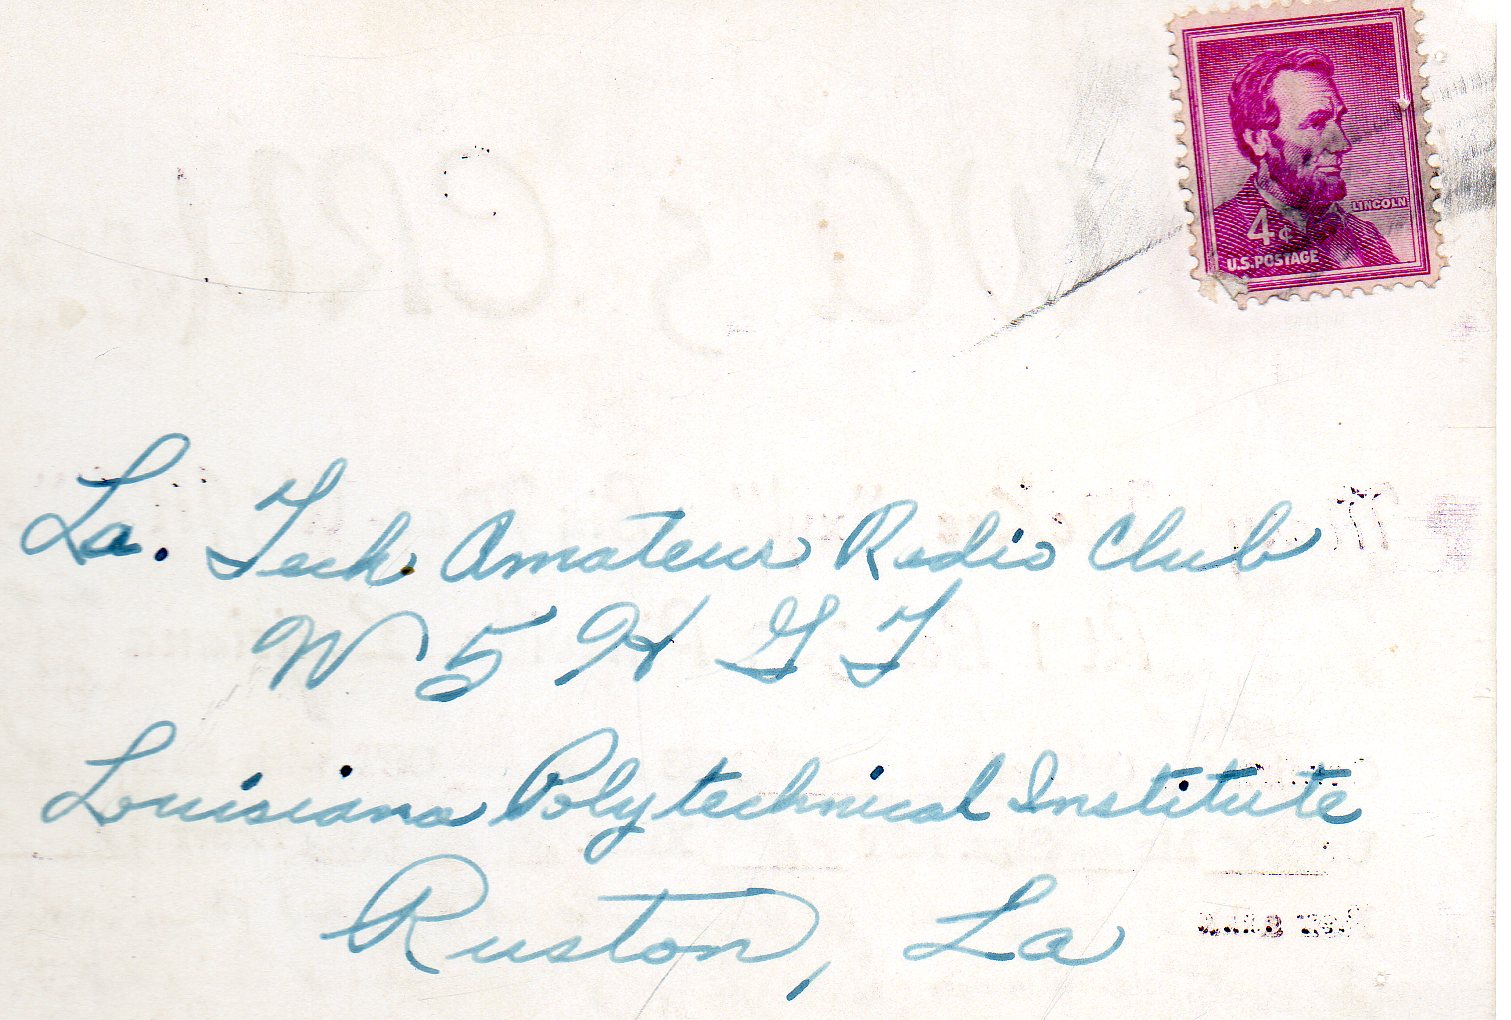 LINCOLN
4¢
U.S. POSTAGE
La. Tech. Amateur Radio Club
W5HGT
Louisiana Polytechnical Institute
Ruston, La